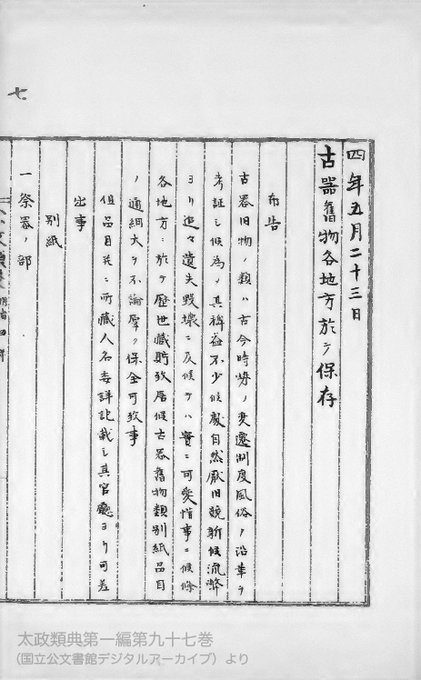 七
四年五月二十三日
古器舊物各地方ニ於テ保存
布告
古器旧物ノ類ハ古今時勢ノ変遷制度風俗ノ沿革ヲ
考証シ候為メ其裨益不少候処自然厭旧競新候流弊
ヨリ追々遺失毀壊ニ及候テハ実ニ可愛惜事ニ候條
各地方ニ於テ歴世蔵貯致居候古器舊物類別紙品目
ノ通細大ヲ不論厚ク保全可致事
但品目並ニ所蔵人名委詳記載シ其官廳ヨリ可差
出事
別紙
一祭器ノ部
太政類典第一編第九十七巻
(国立公文書館デジタルアーカイブ)より